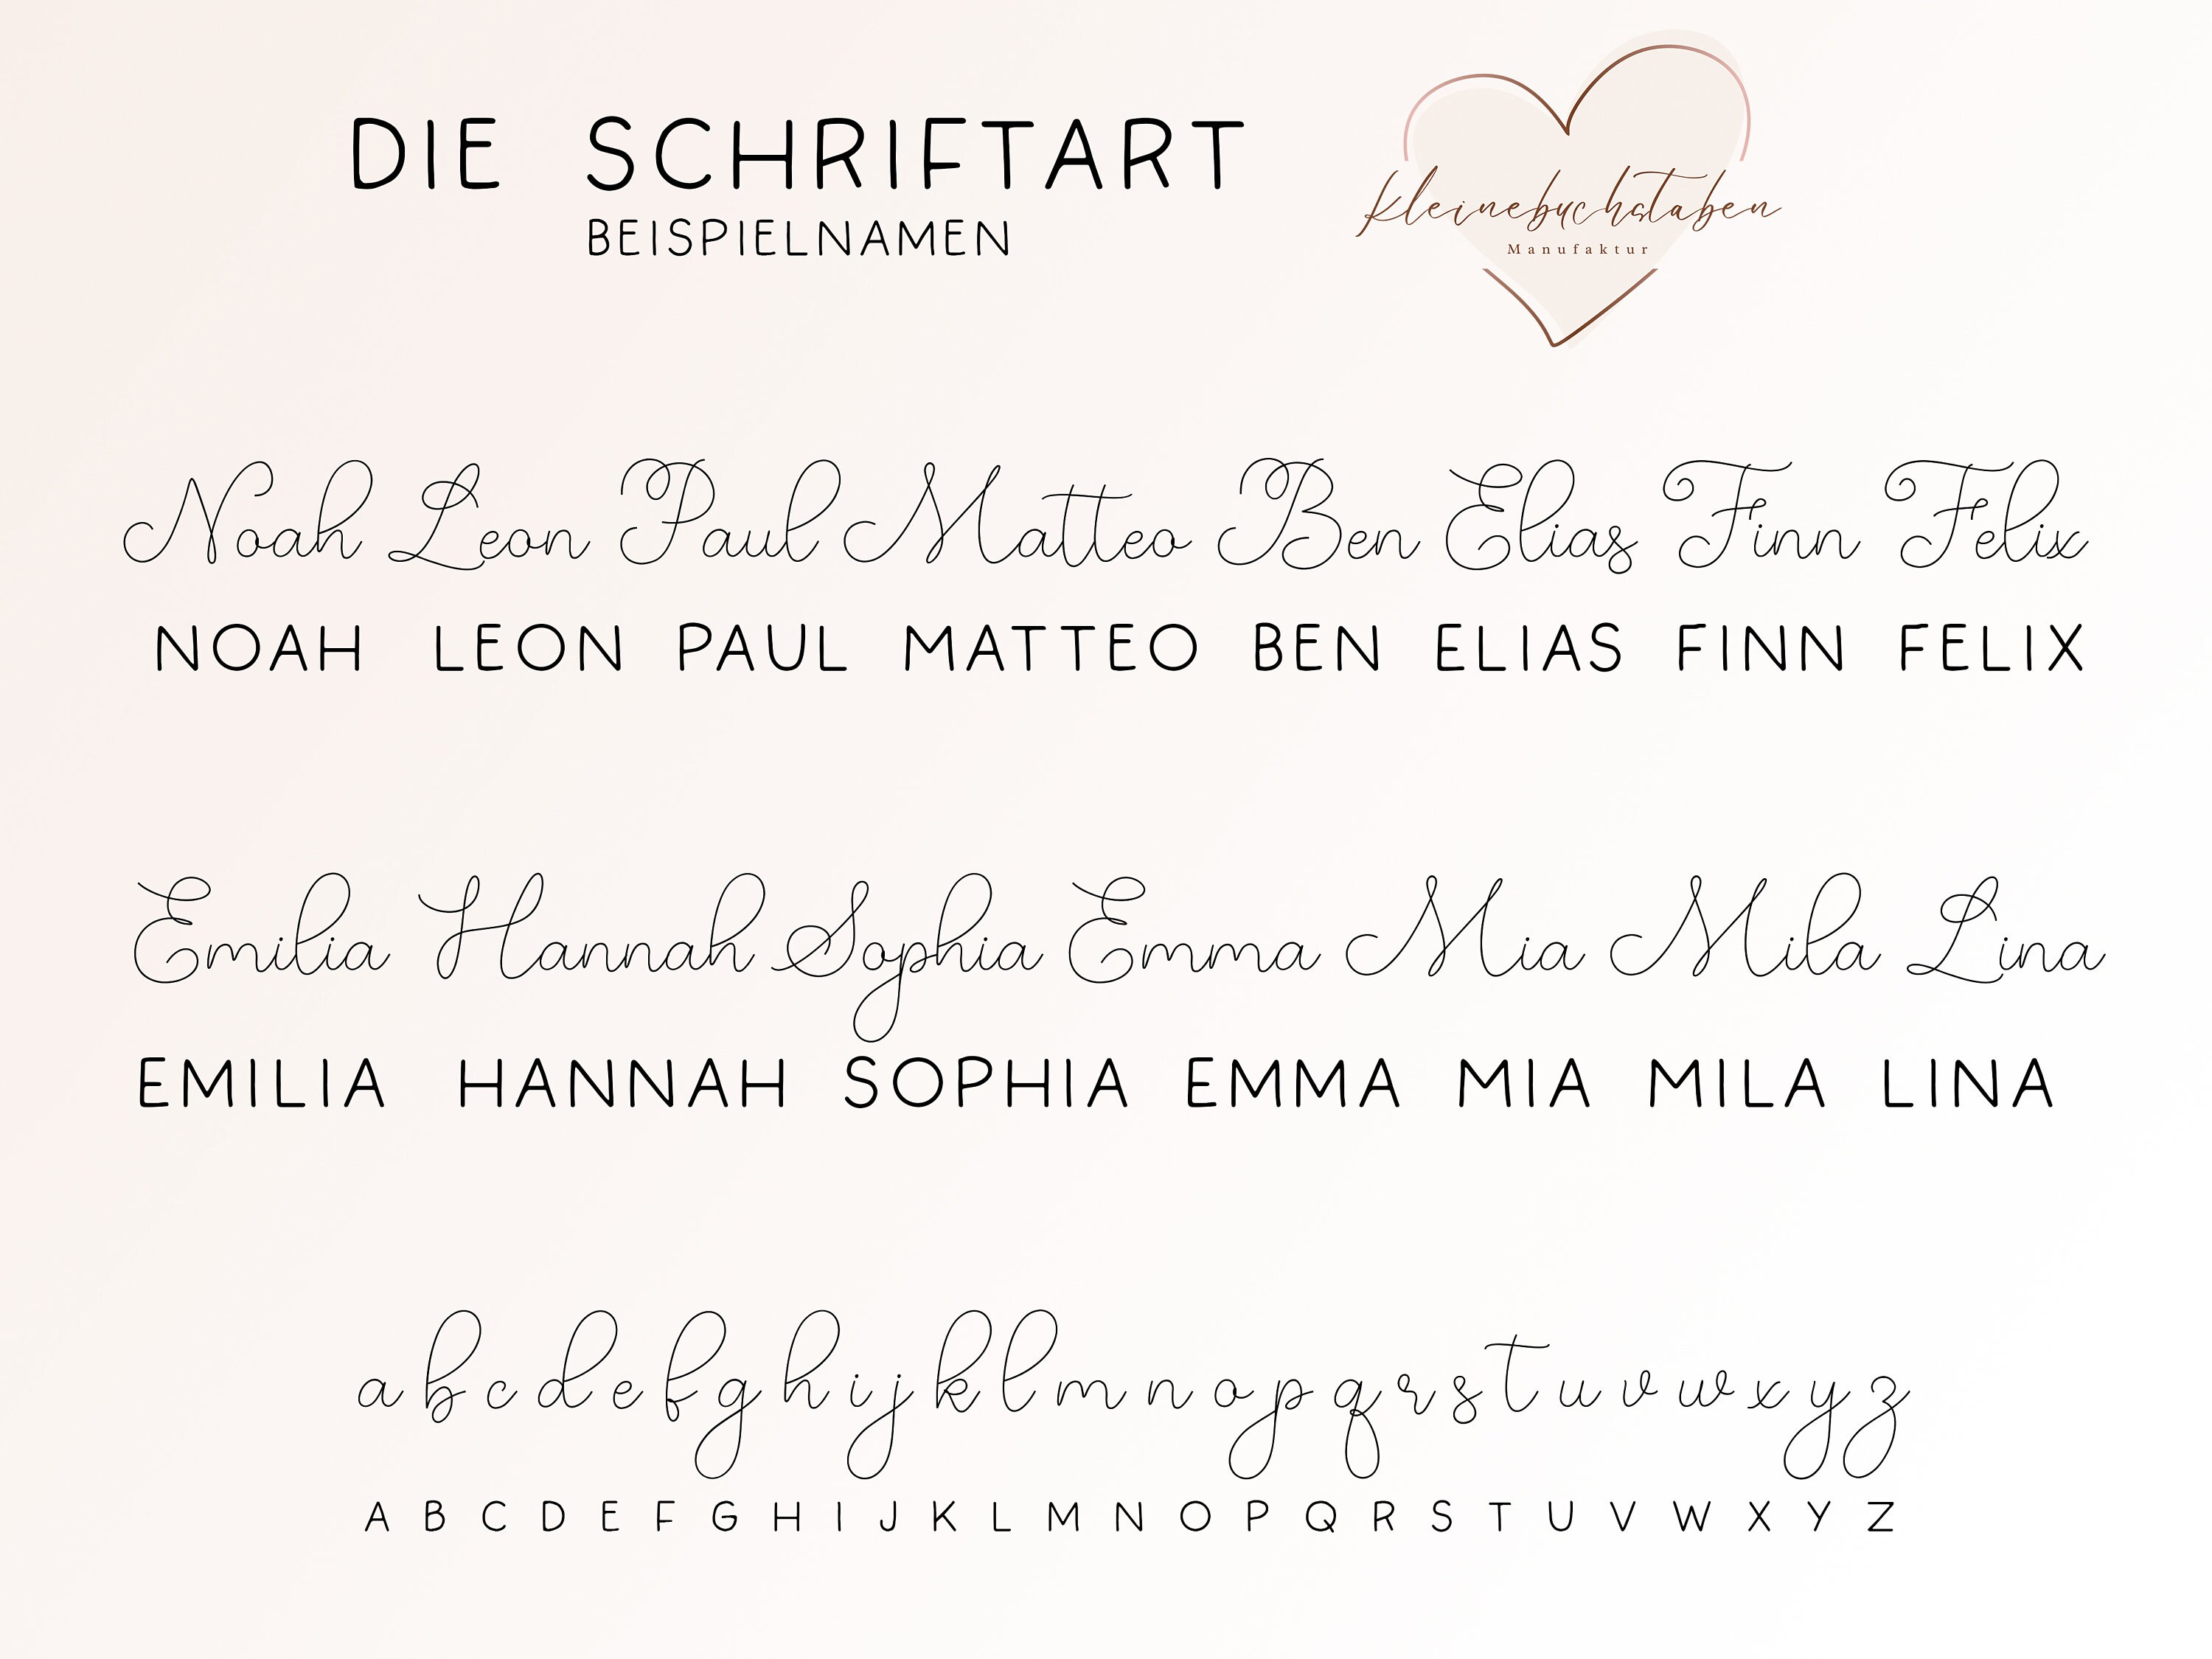 DIE SCHRIFTART
BEISPIELNAMEN
kleinebuchstaben
Manufaktur
Noah Leon Paul Matteo Ben Elias Finn Felix
NOAH LEON PAUL MATTEO BEN ELIAS FINN FELIX
Emilia Hannah Sophia Emma Mia Mila Lina
EMILIA HANNAH SOPHIA EMMA MIA MILA LINA
a b c d e f g h i j k l m n o p q r s t u v w x y z
A B C D E F G H I J K L M N O P Q R S T U V W X Y Z